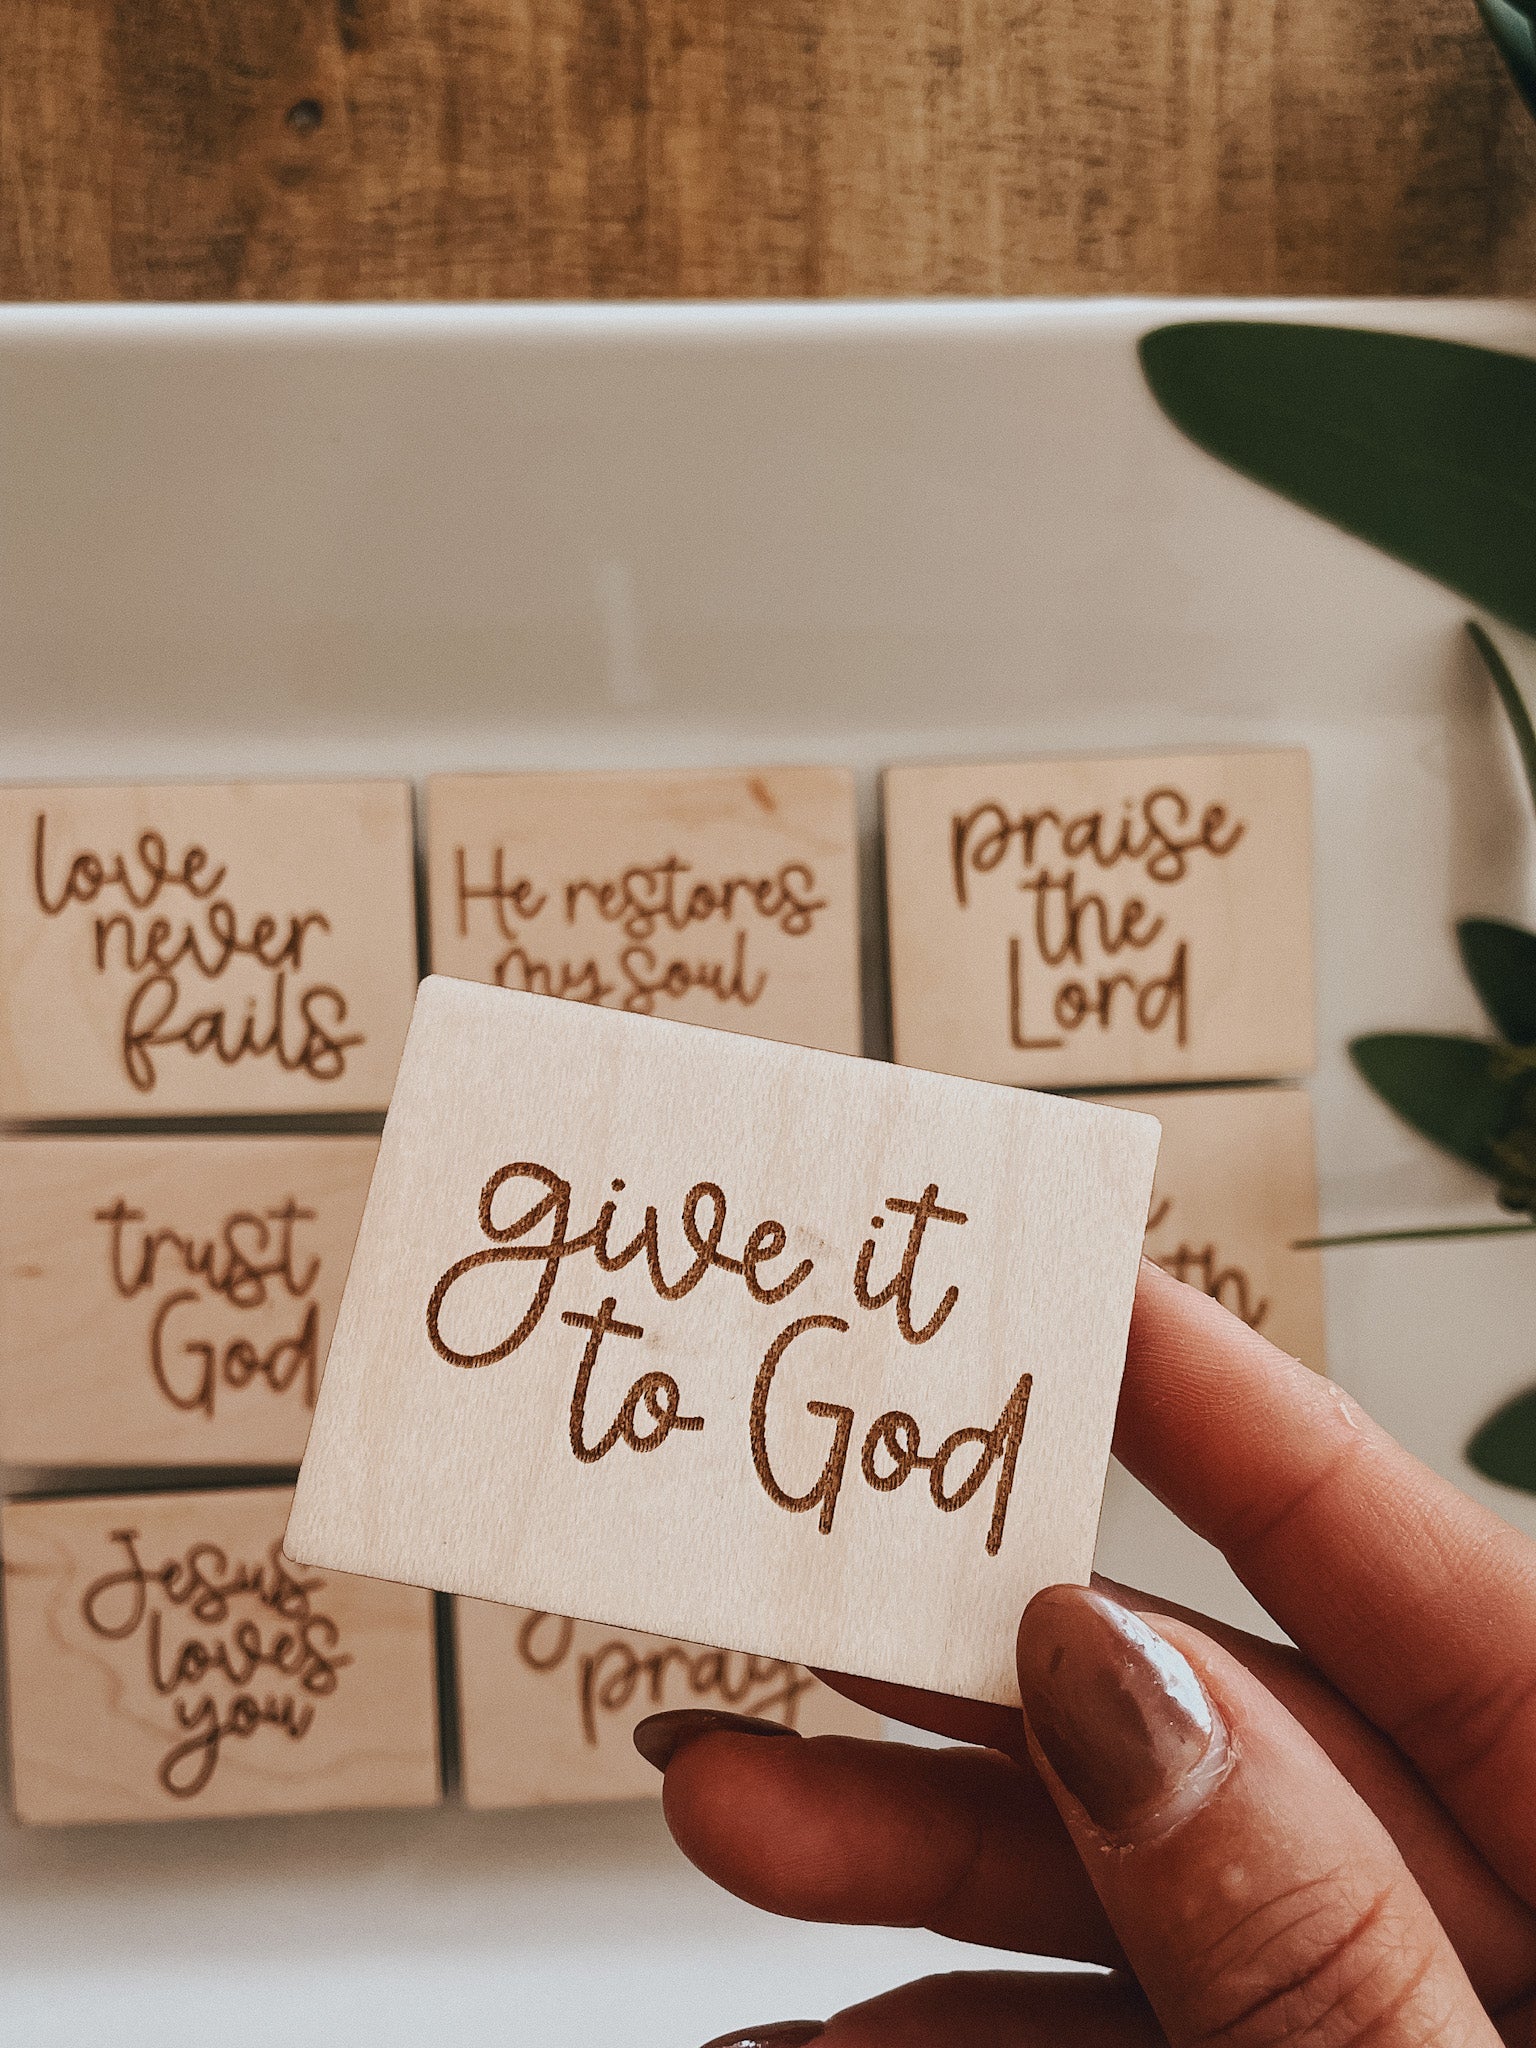 love
never
fails
He restores
my soul
praise
the
Lord
trust
God
give it
to God
Jesus
loves
you
pray